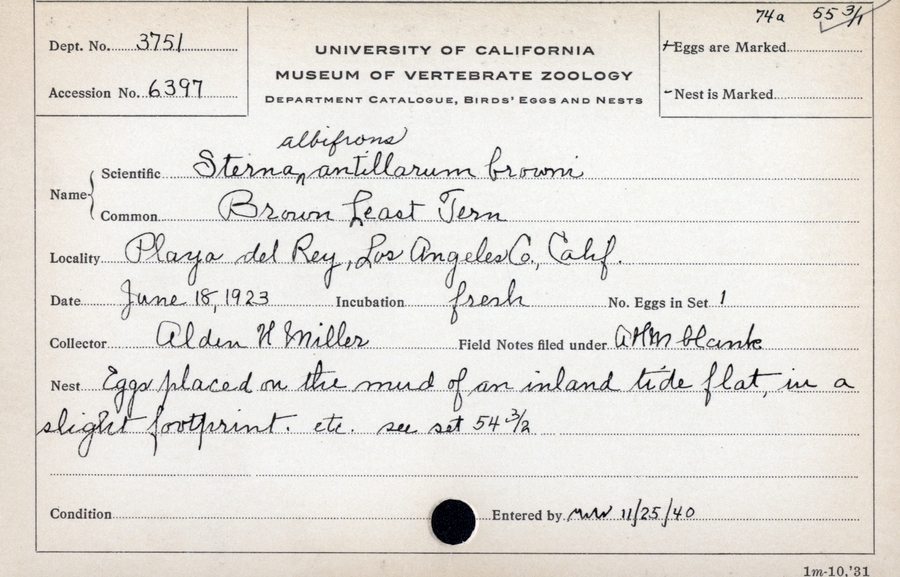 74a 55 3/1
Dept. No. 3751
UNIVERSITY OF CALIFORNIA
+Eggs are Marked
MUSEUM OF VERTEBRATE ZOOLOGY
Accession No. 6397
DEPARTMENT CATALOGUE, BIRDS' EGGS AND NESTS
-Nest is Marked
albifrons
Name Scientific Sterna ^ antillarum browni
Common Brown Least Tern
Locality Playa del Rey, Los Angeles Co., Calif.
Date June 18, 1923 Incubation fresh No. Eggs in Set 1
Collector Alden H Miller Field Notes filed under AHM blank
Nest Eggs placed on the mud of an inland tide flat, in a
slight footprint. etc. see set 54 3/2
Condition Entered by 11/25/40
1m-10,'31